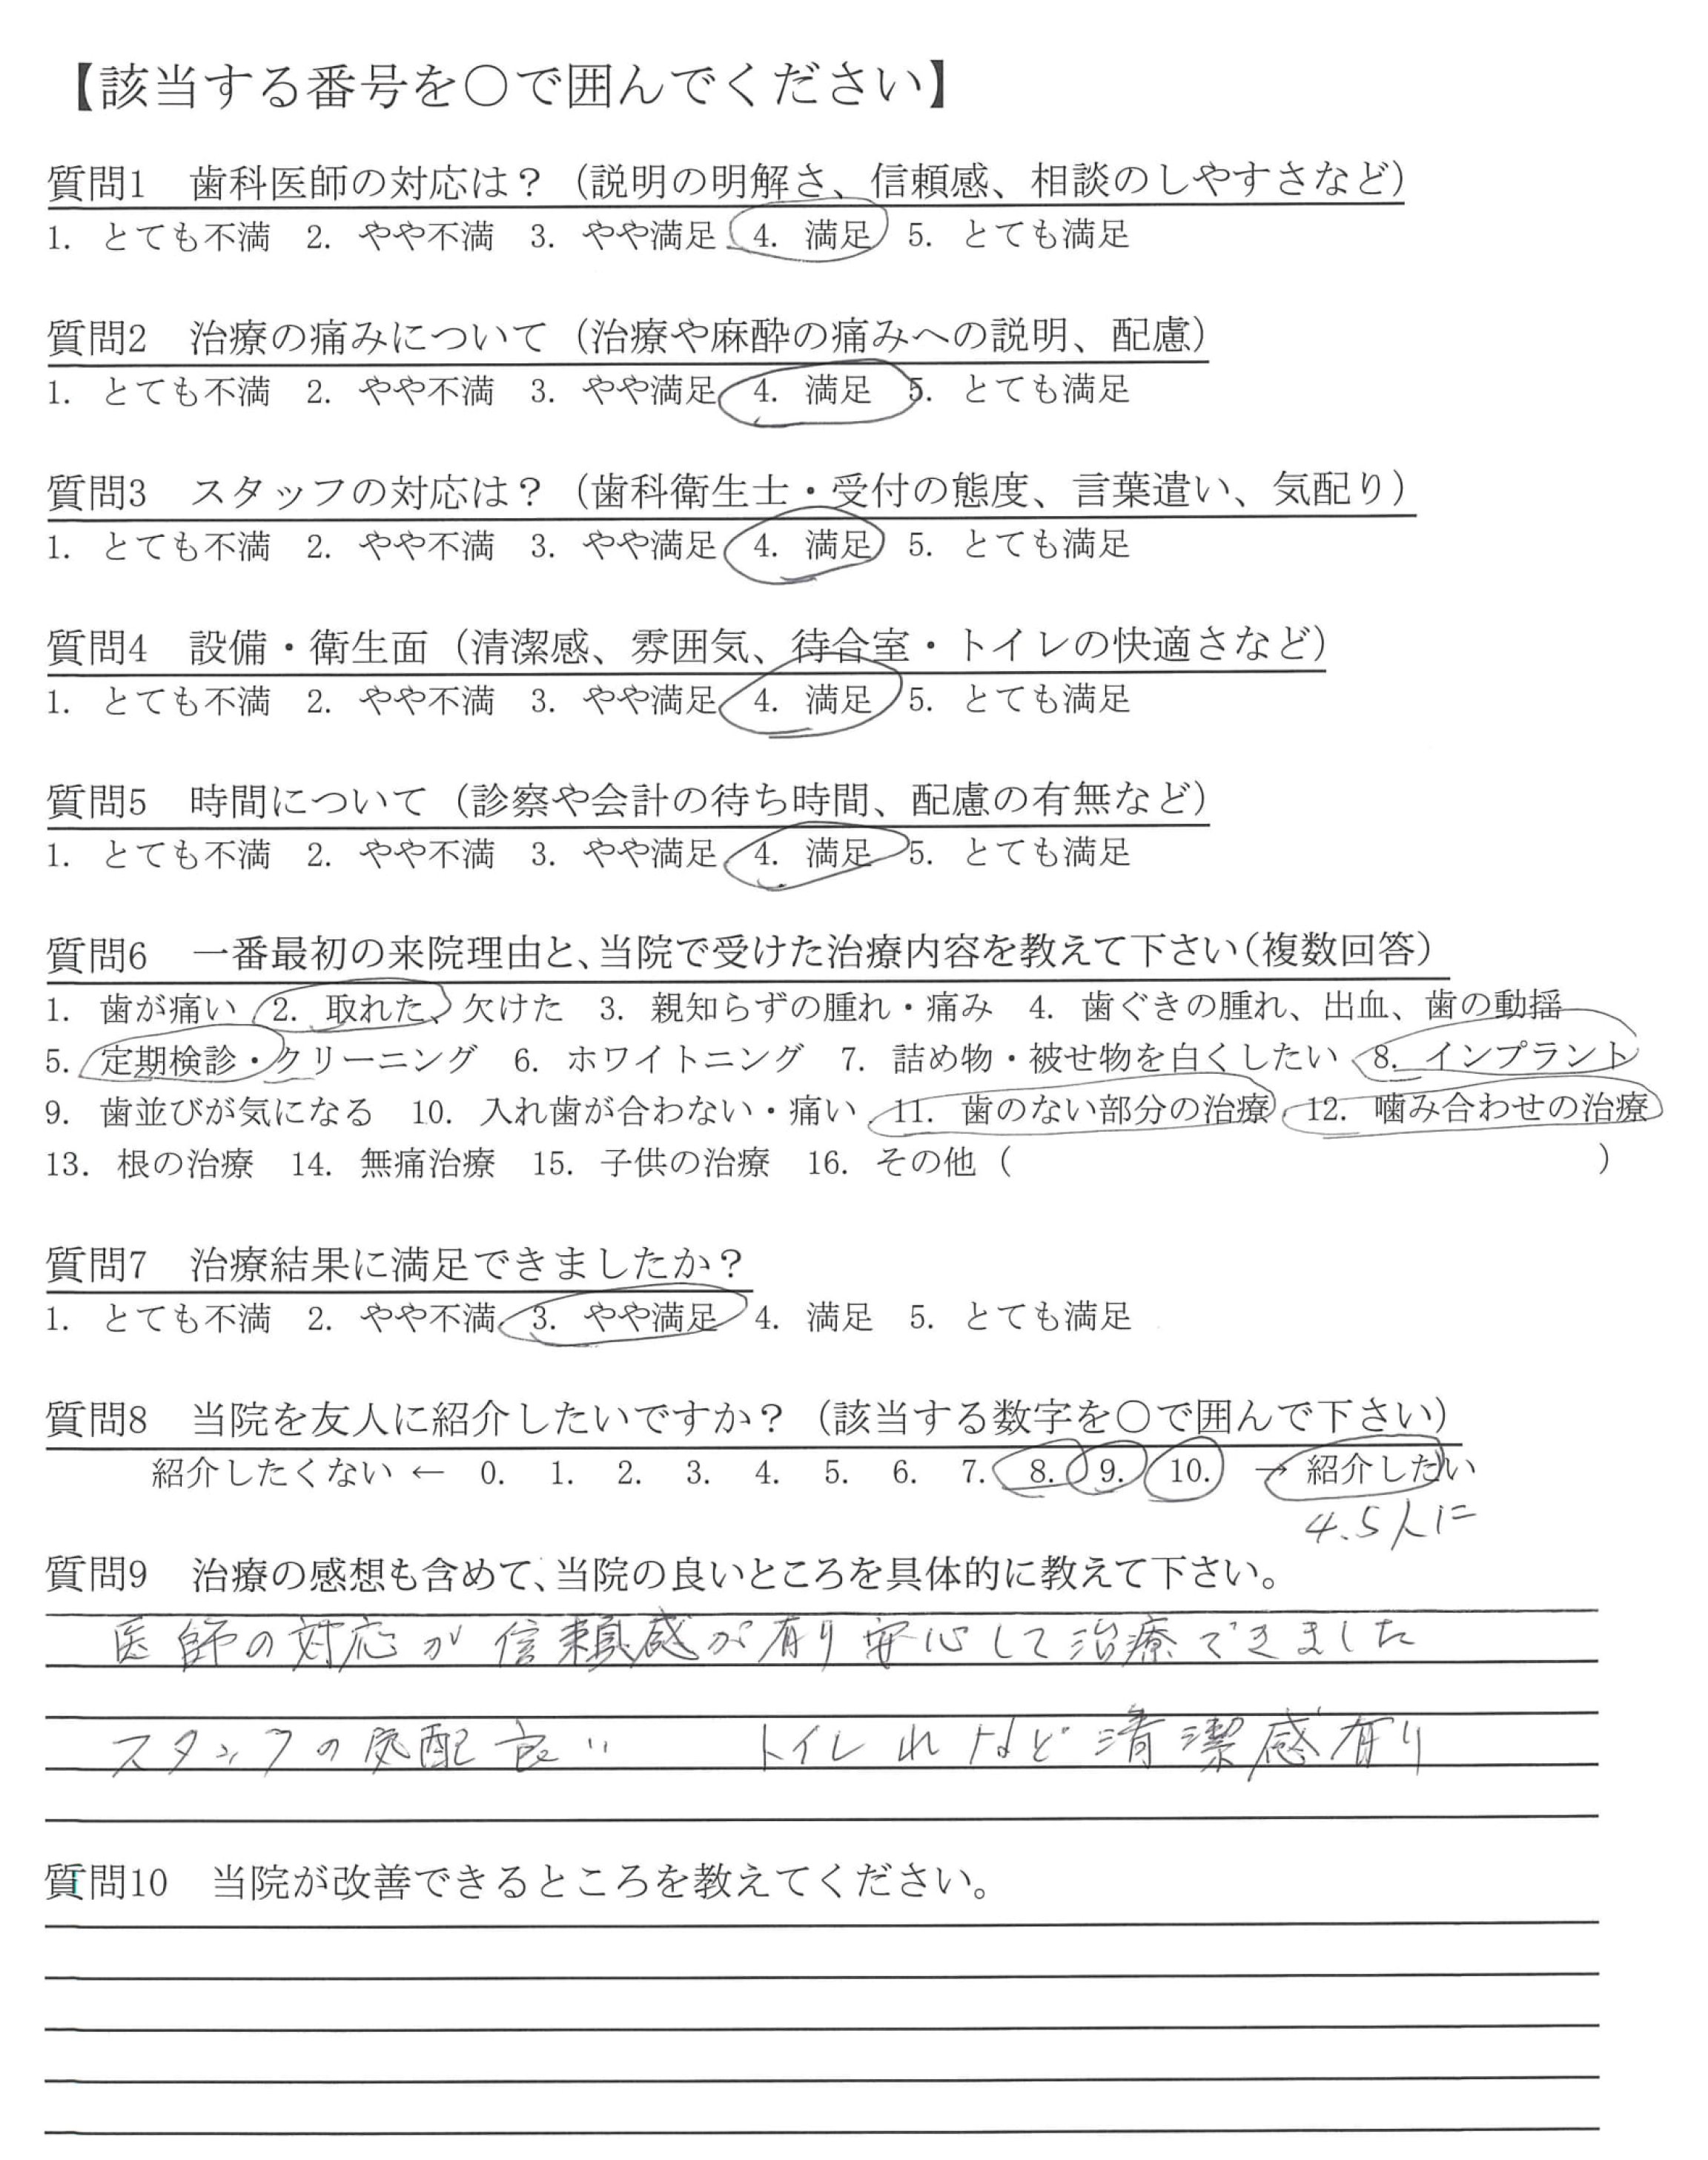 【該当する番号を〇で囲んでください】
質問1　歯科医師の対応は？（説明の明解さ、信頼感、相談のしやすさなど）
1. とても不満　2. やや不満　3. やや満足　4. 満足　5. とても満足
質問2　治療の痛みについて（治療や麻酔の痛みへの説明、配慮）
1. とても不満　2. やや不満　3. やや満足　4. 満足　5. とても満足
質問3　スタッフの対応は？（歯科衛生士・受付の態度、言葉遣い、気配り）
1. とても不満　2. やや不満　3. やや満足　4. 満足　5. とても満足
質問4　設備・衛生面（清潔感、雰囲気、待合室・トイレの快適さなど）
1. とても不満　2. やや不満　3. やや満足　4. 満足　5. とても満足
質問5　時間について（診察や会計の待ち時間、配慮の有無など）
1. とても不満　2. やや不満　3. やや満足　4. 満足　5. とても満足
質問6　一番最初の来院理由と、当院で受けた治療内容を教えて下さい（複数回答）
1. 歯が痛い　2. 取れた、欠けた　3. 親知らずの腫れ・痛み　4. 歯ぐきの腫れ、出血、歯の動揺
5. 定期検診・クリーニング　6. ホワイトニング　7. 詰め物・被せ物を白くしたい　8. インプラント
9. 歯並びが気になる　10. 入れ歯が合わない・痛い　11. 歯のない部分の治療　12. 噛み合わせの治療
13. 根の治療　14. 無痛治療　15. 子供の治療　16. その他（　　　　　　　）
質問7　治療結果に満足できましたか？
1. とても不満　2. やや不満　3. やや満足　4. 満足　5. とても満足
質問8　当院を友人に紹介したいですか？（該当する数字を〇で囲んで下さい）
紹介したくない ← 0. 1. 2. 3. 4. 5. 6. 7. 8. 9. 10. → 紹介したい
4.5人に
質問9　治療の感想も含めて、当院の良いところを具体的に教えて下さい。
医師の対応が信頼感が有り安心して治療できました
スタッフの気配良い　トイレれなど清潔感有り
質問10　当院が改善できるところを教えてください。